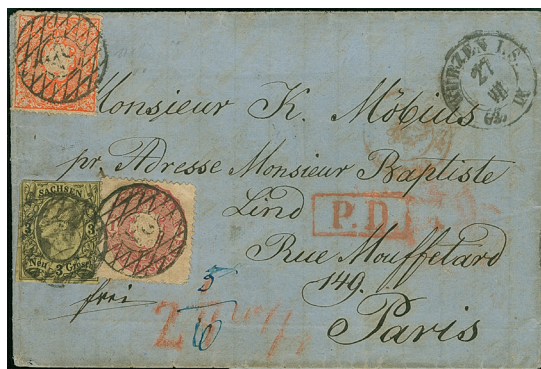 WURZEN I. S.
27
VII
63
Monsieur K. Möbius
pr Adresse Monsieur Baptiste
Lind
P.D.
Rue Mouffetard
149.
Paris
SACHSEN
3 3
Neu 3 Grosch
frei
5/6
2